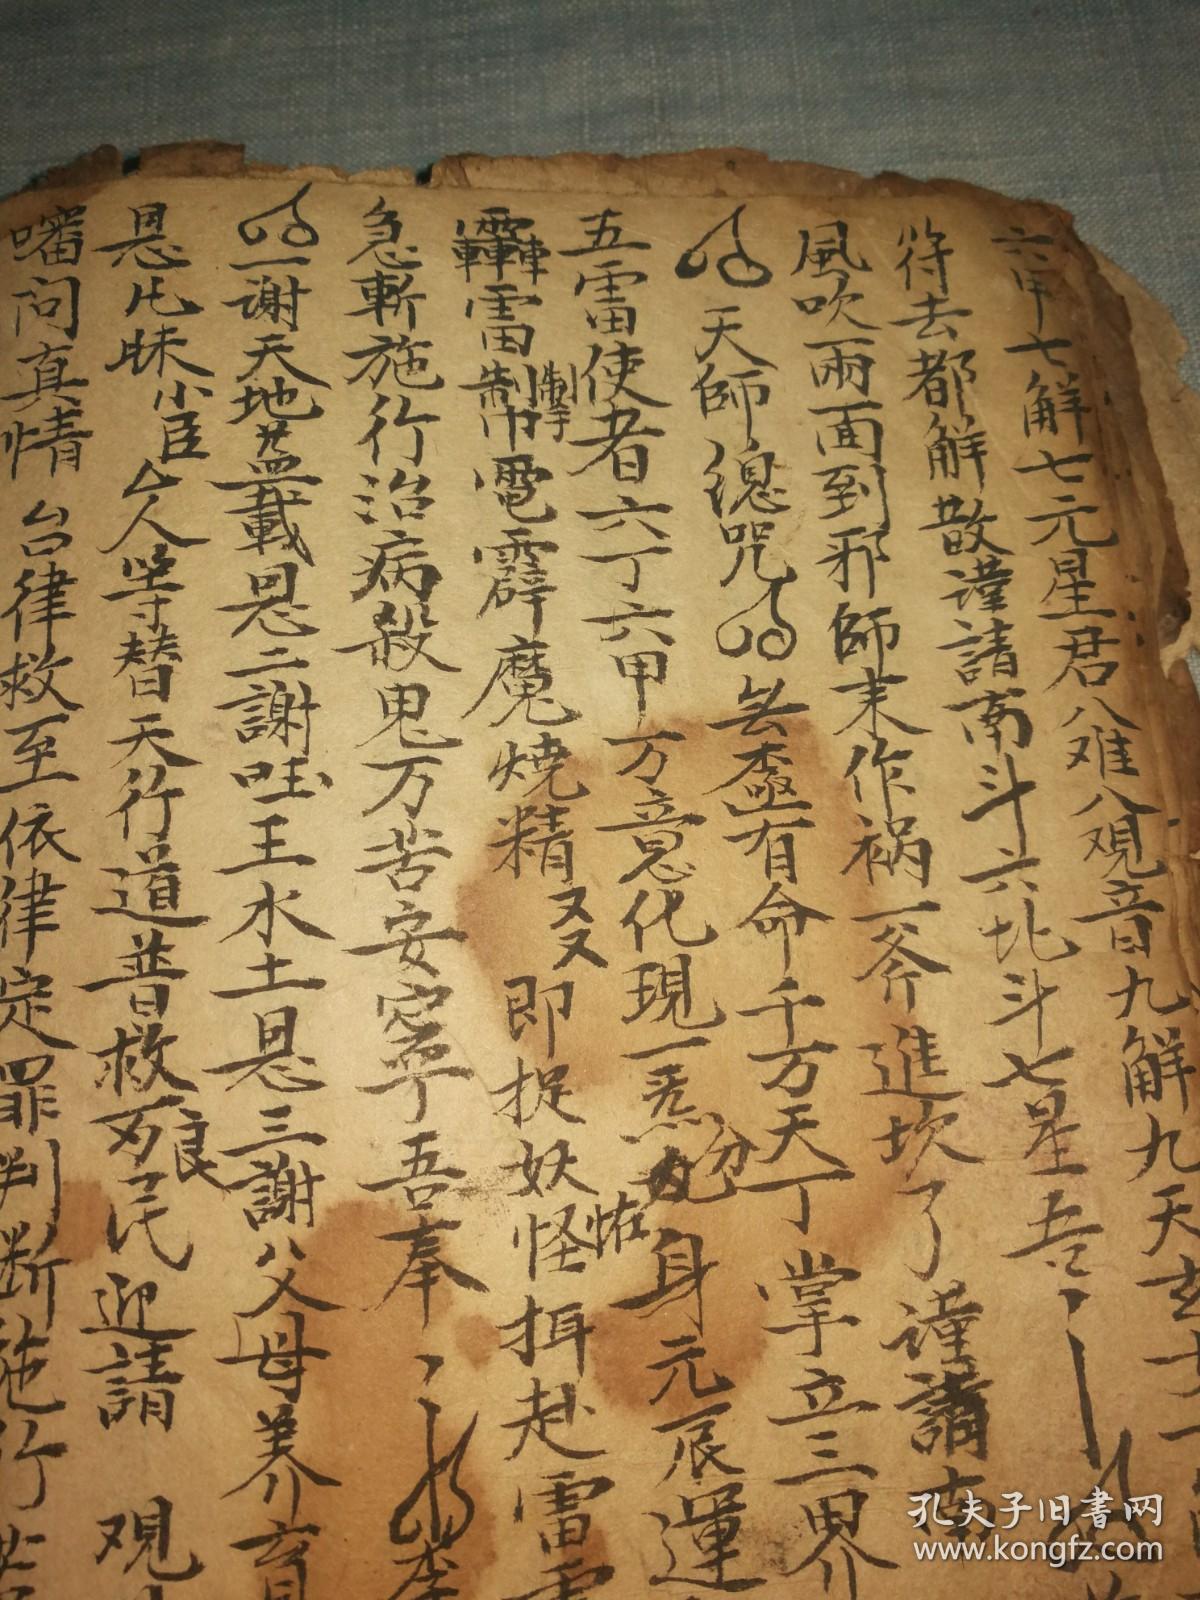 六甲七解七元星君八难八观音九解九天玄
符去都解散謹請南斗六北斗七星吾
風吹雨面到邪師未作祸一斧進坎了謹請南
天師總咒 無極有命千万天丁掌立三界
五雷使者六丁六甲万意化現一炁分身元辰運
轟雷掣電霹魔燒精又又即捉妖怪押赴雷
急斬施行治病殺鬼万苦安寧吾奉
一谢天地盖載恩二謝国王水土恩三謝父母养育恩
恩比昧小臣人等替天行道普救良民迎請 观
審问真情台律救至依律定罪判断施行
孔夫子旧書网
www.kongfz.com